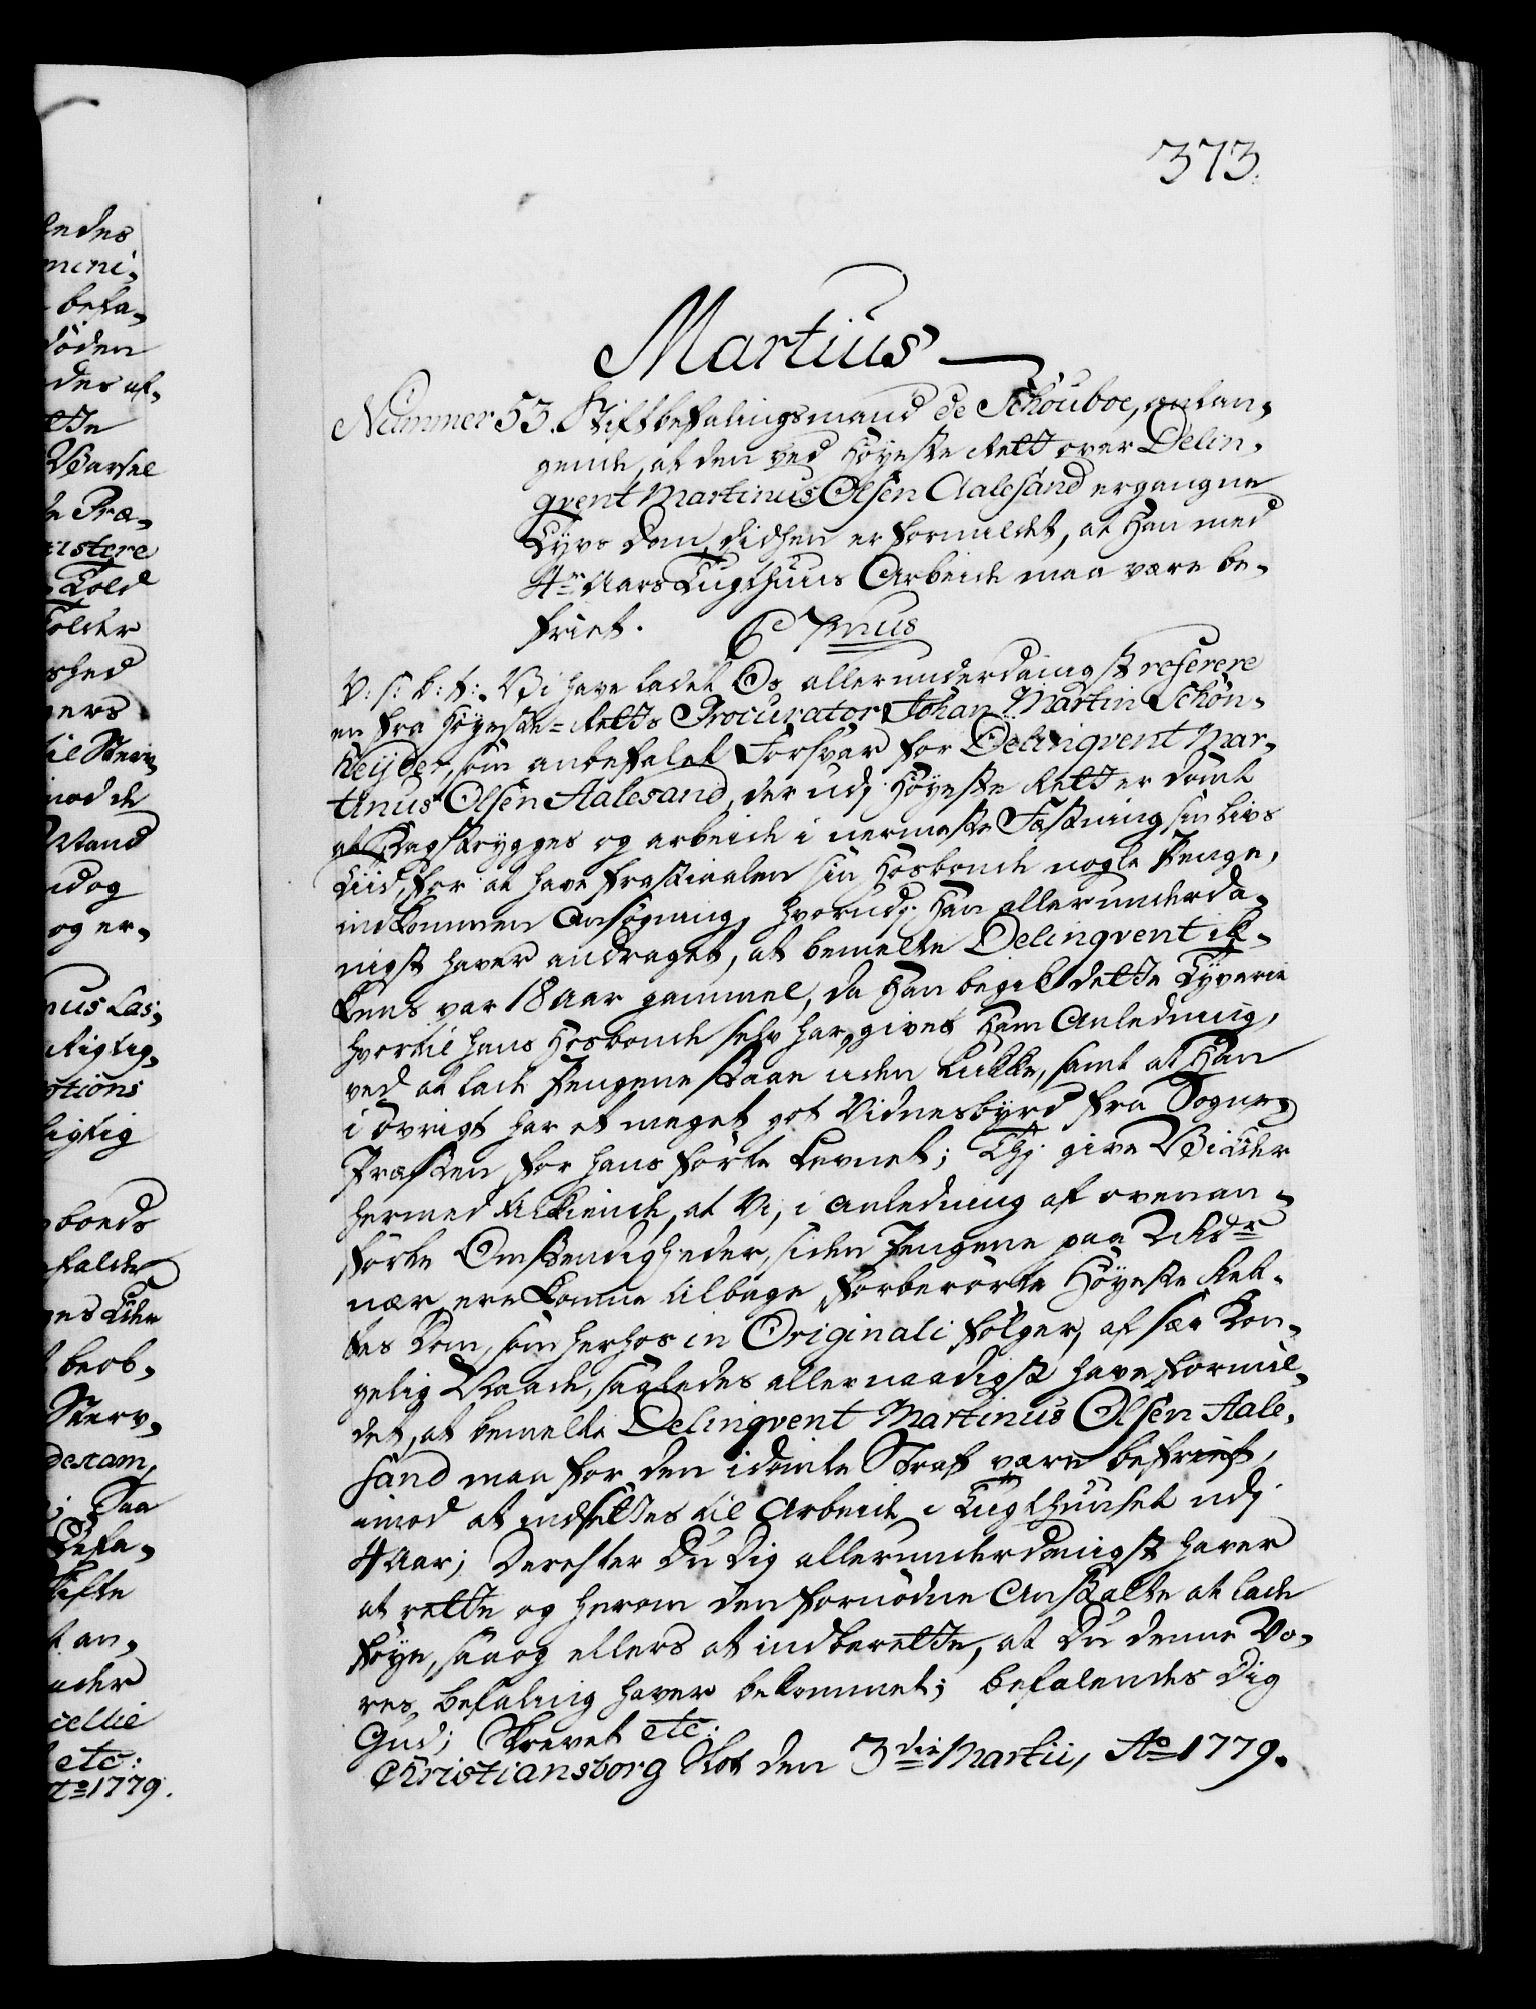 373.
Martius
Nummer 53. Stiftbefalingsmand de Schouboe, anlan-
gende, at den ved Høyeste Rett over Delin-
qvent Martinus Olsen Aalesand ergangne
Tyvs Dom, didhen er formildet, at Han med
4re Aars Tugthuus Arbeide maa være be-
friet.
V: s: b: t: Vi have ladet Os allerunderdanigst referere
en fra Høyeste-Retts Procurator Johan Martin Schön-
heijder, som anbefalet Forsvar for Delinqvent Mar-
tinus Olsen Aalesand, der udj Høyeste Rett er dømt
at Kagstrygges og arbeide i nermeste Fæstning sin Livs
Tiid, for at have frastiaalen sin Hosbonde nogle Penge,
indkommen Ansøgning, hvorudj Han allerunderda-
nigst haver andraget, at bemelte Delinqvent ik-
kuns var 18 aar gammel, da Han begik dette Tyverie
hvortil hans Hosbonde selv har givet Ham Anledning,
ved at lade Pengene staae uden Lukke, samt at Han
i øvrigt har et meget got Vidnesbyrd fra Sogne-
Præsten for hans førte Levnet; Thj give Vi Eder
hermed tilkiende, at Vi, i Anledning af ovenan-
førte Omstendigheder, siden Pengene paa 2 Rdr
nær, ere komne tilbage, forberørte Høyeste Ret-
tes Dom, som herhos in Originali følger, af sær Kon-
gelig Naade, saaledes allernaadigst have formil-
det, at bemelte Delinqvent Martinus Olsen Aale-
sand maa for den idømte Straf være befriet,
imod at indsettes til Arbeide i Tugthuuset udj
4 Aar; Derefter Du Dig allerunderdanigst haver
at rette og herom den fornødne Anstalte at lade
føye, saa og ellers at indberette, at Du denne Vo-
res befaling haver bekommet; befalendes Dig
Gud; Skrevet etc:
Christiansborg Slot den 3die Martii, Ao 1779.